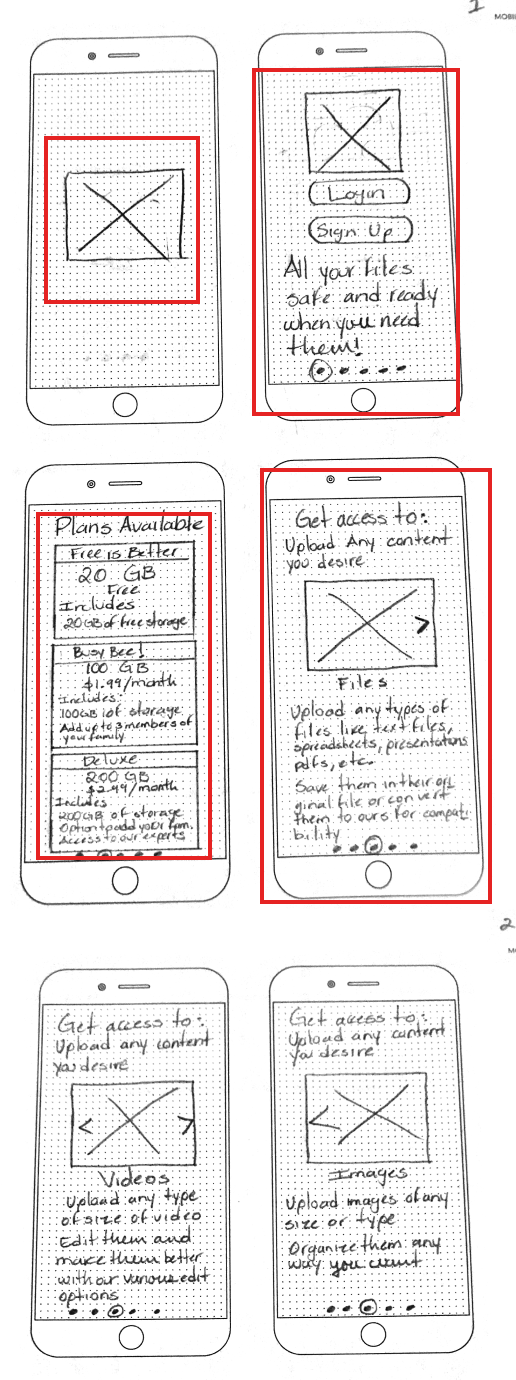 1
MOBIL
Login
Sign Up
All your files
safe and ready
when you need
them!
Plans Available
Free is Better
20 GB
Free
Includes
20GB of free storage
Busy Bee!
100 GB
$1.99/month
Includes:
100GB of storage
Add up to 3 members of
your family
Deluxe
200 GB
$2.99/month
Includes
200GB of storage
Option to add your fam.
Access to our experts
Get access to:
Upload Any content
you desire
>
Files
Upload any types of
files like, text files,
spreadsheets, presentations
pdfs, etc.
Save them in their ori
ginal file or convert
them to ours for compati
bility
2
MO
Get access to:
Upload any content
you desire
< >
Videos
Upload any type
of size of video
Edit them and
make them better
with our various edit
options
Get access to:
Upload any content
you desire
<
Images
Upload images of any
size or type
Organize them any
way you want